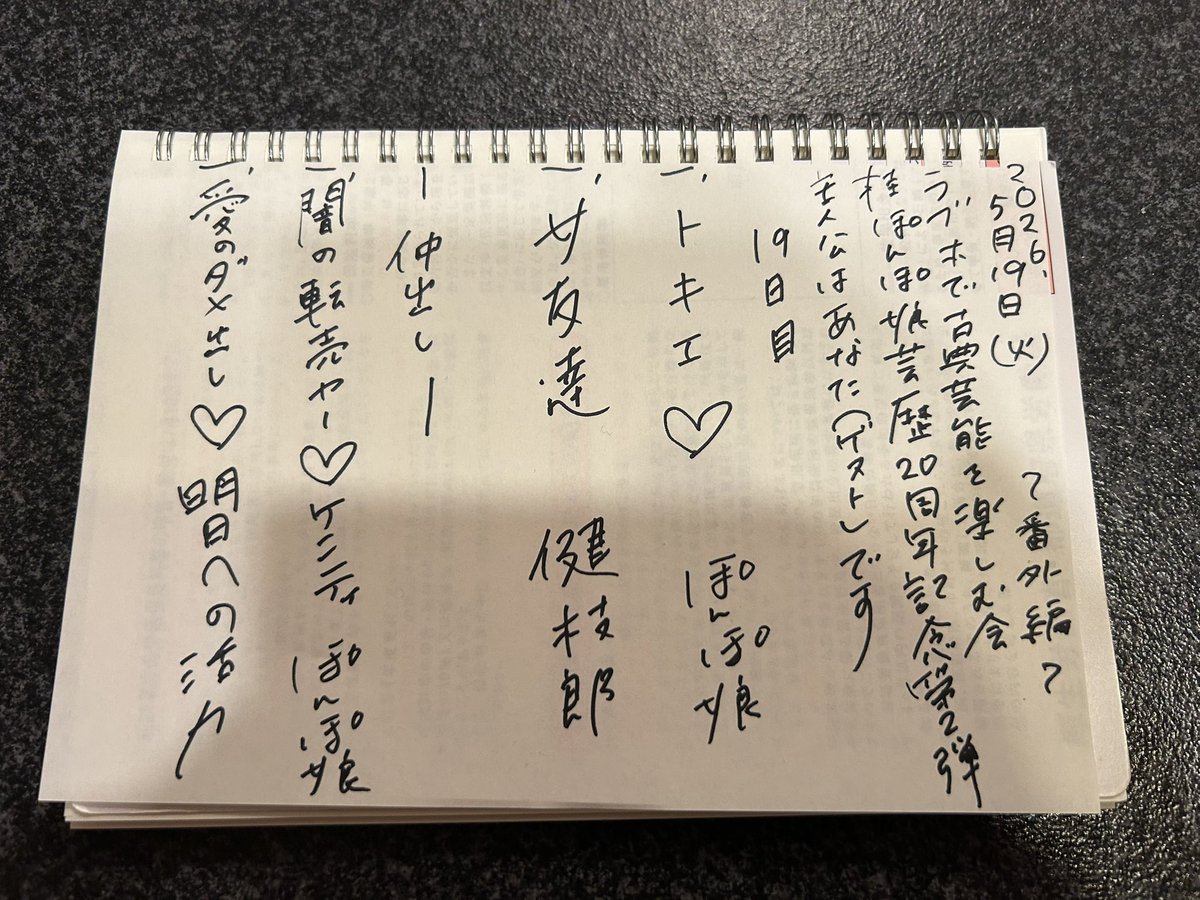 2026.
5月19日(火) 〜番外編〜
ラブホで古典芸能を楽しむ会
桂ぽんぽ娘芸歴20周年記念第2弾
主人公はあなた(ゲスト)です
19日目
一、トキエ♡ ぽんぽ娘
一、女友達 健枝郎
ー仲出しー
一、闇の転売ヤー♡ケンニティ ぽんぽ娘
一、愛のダメ出し♡明日への活力